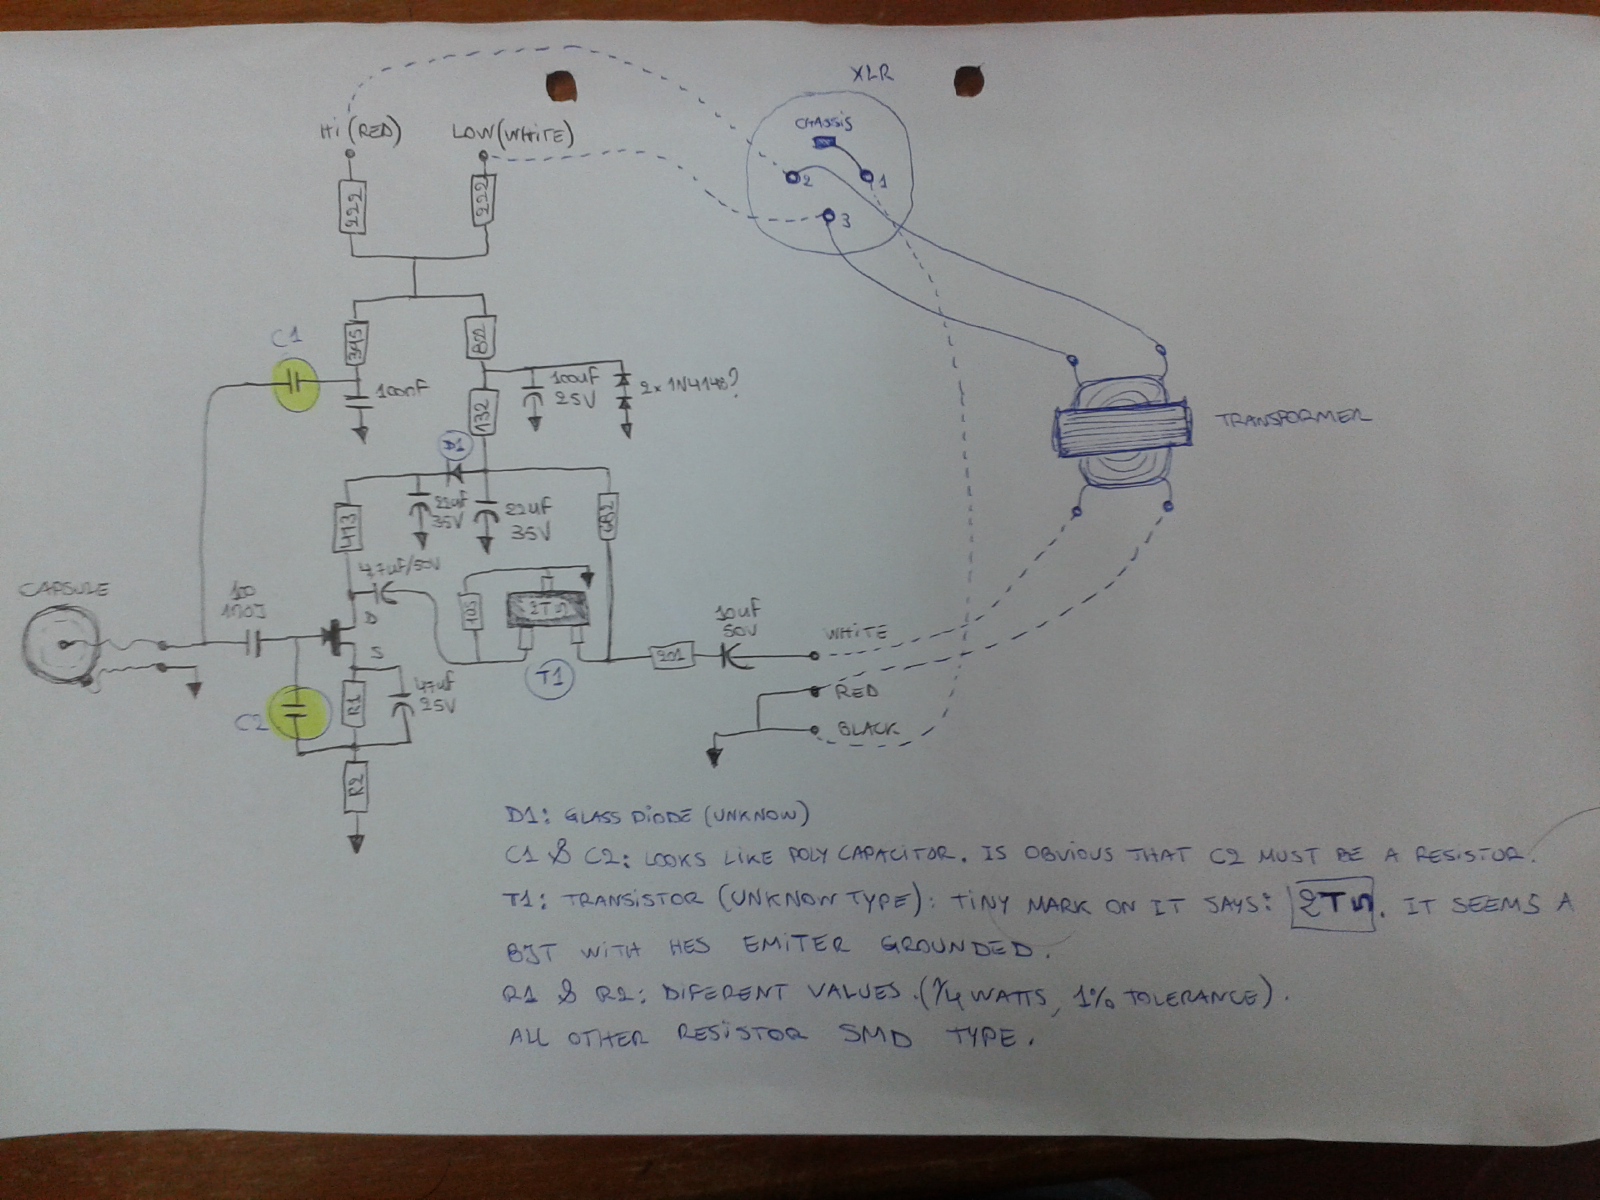 XLR
CHASSIS
Hi (RED)
LOW (WHITE)
2
1
3
222
222
C1
395
100nF
100uF
25V
2x 1N4148?
132
D1
22uF
35V
22uF
35V
413
4,7uF/50V
CAPSULE
100
100J
D
S
2T
T1
10uF
50V
WHITE
RED
BLACK
C2
R1
47uF
25V
R2
TRANSFORMER
D1: GLASS DIODE (UNKNOW)
C1 & C2: LOOKS LIKE POLY CAPACITOR. IS OBVIOUS THAT C2 MUST BE A RESISTOR.
T1: TRANSISTOR (UNKNOW TYPE): TINY MARK ON IT SAYS: 2T. IT SEEMS A
BJT WITH HES EMITER GROUNDED.
R1 & R2: DIFERENT VALUES. (1/4 WATTS, 1% TOLERANCE).
ALL OTHER RESISTOR SMD TYPE.